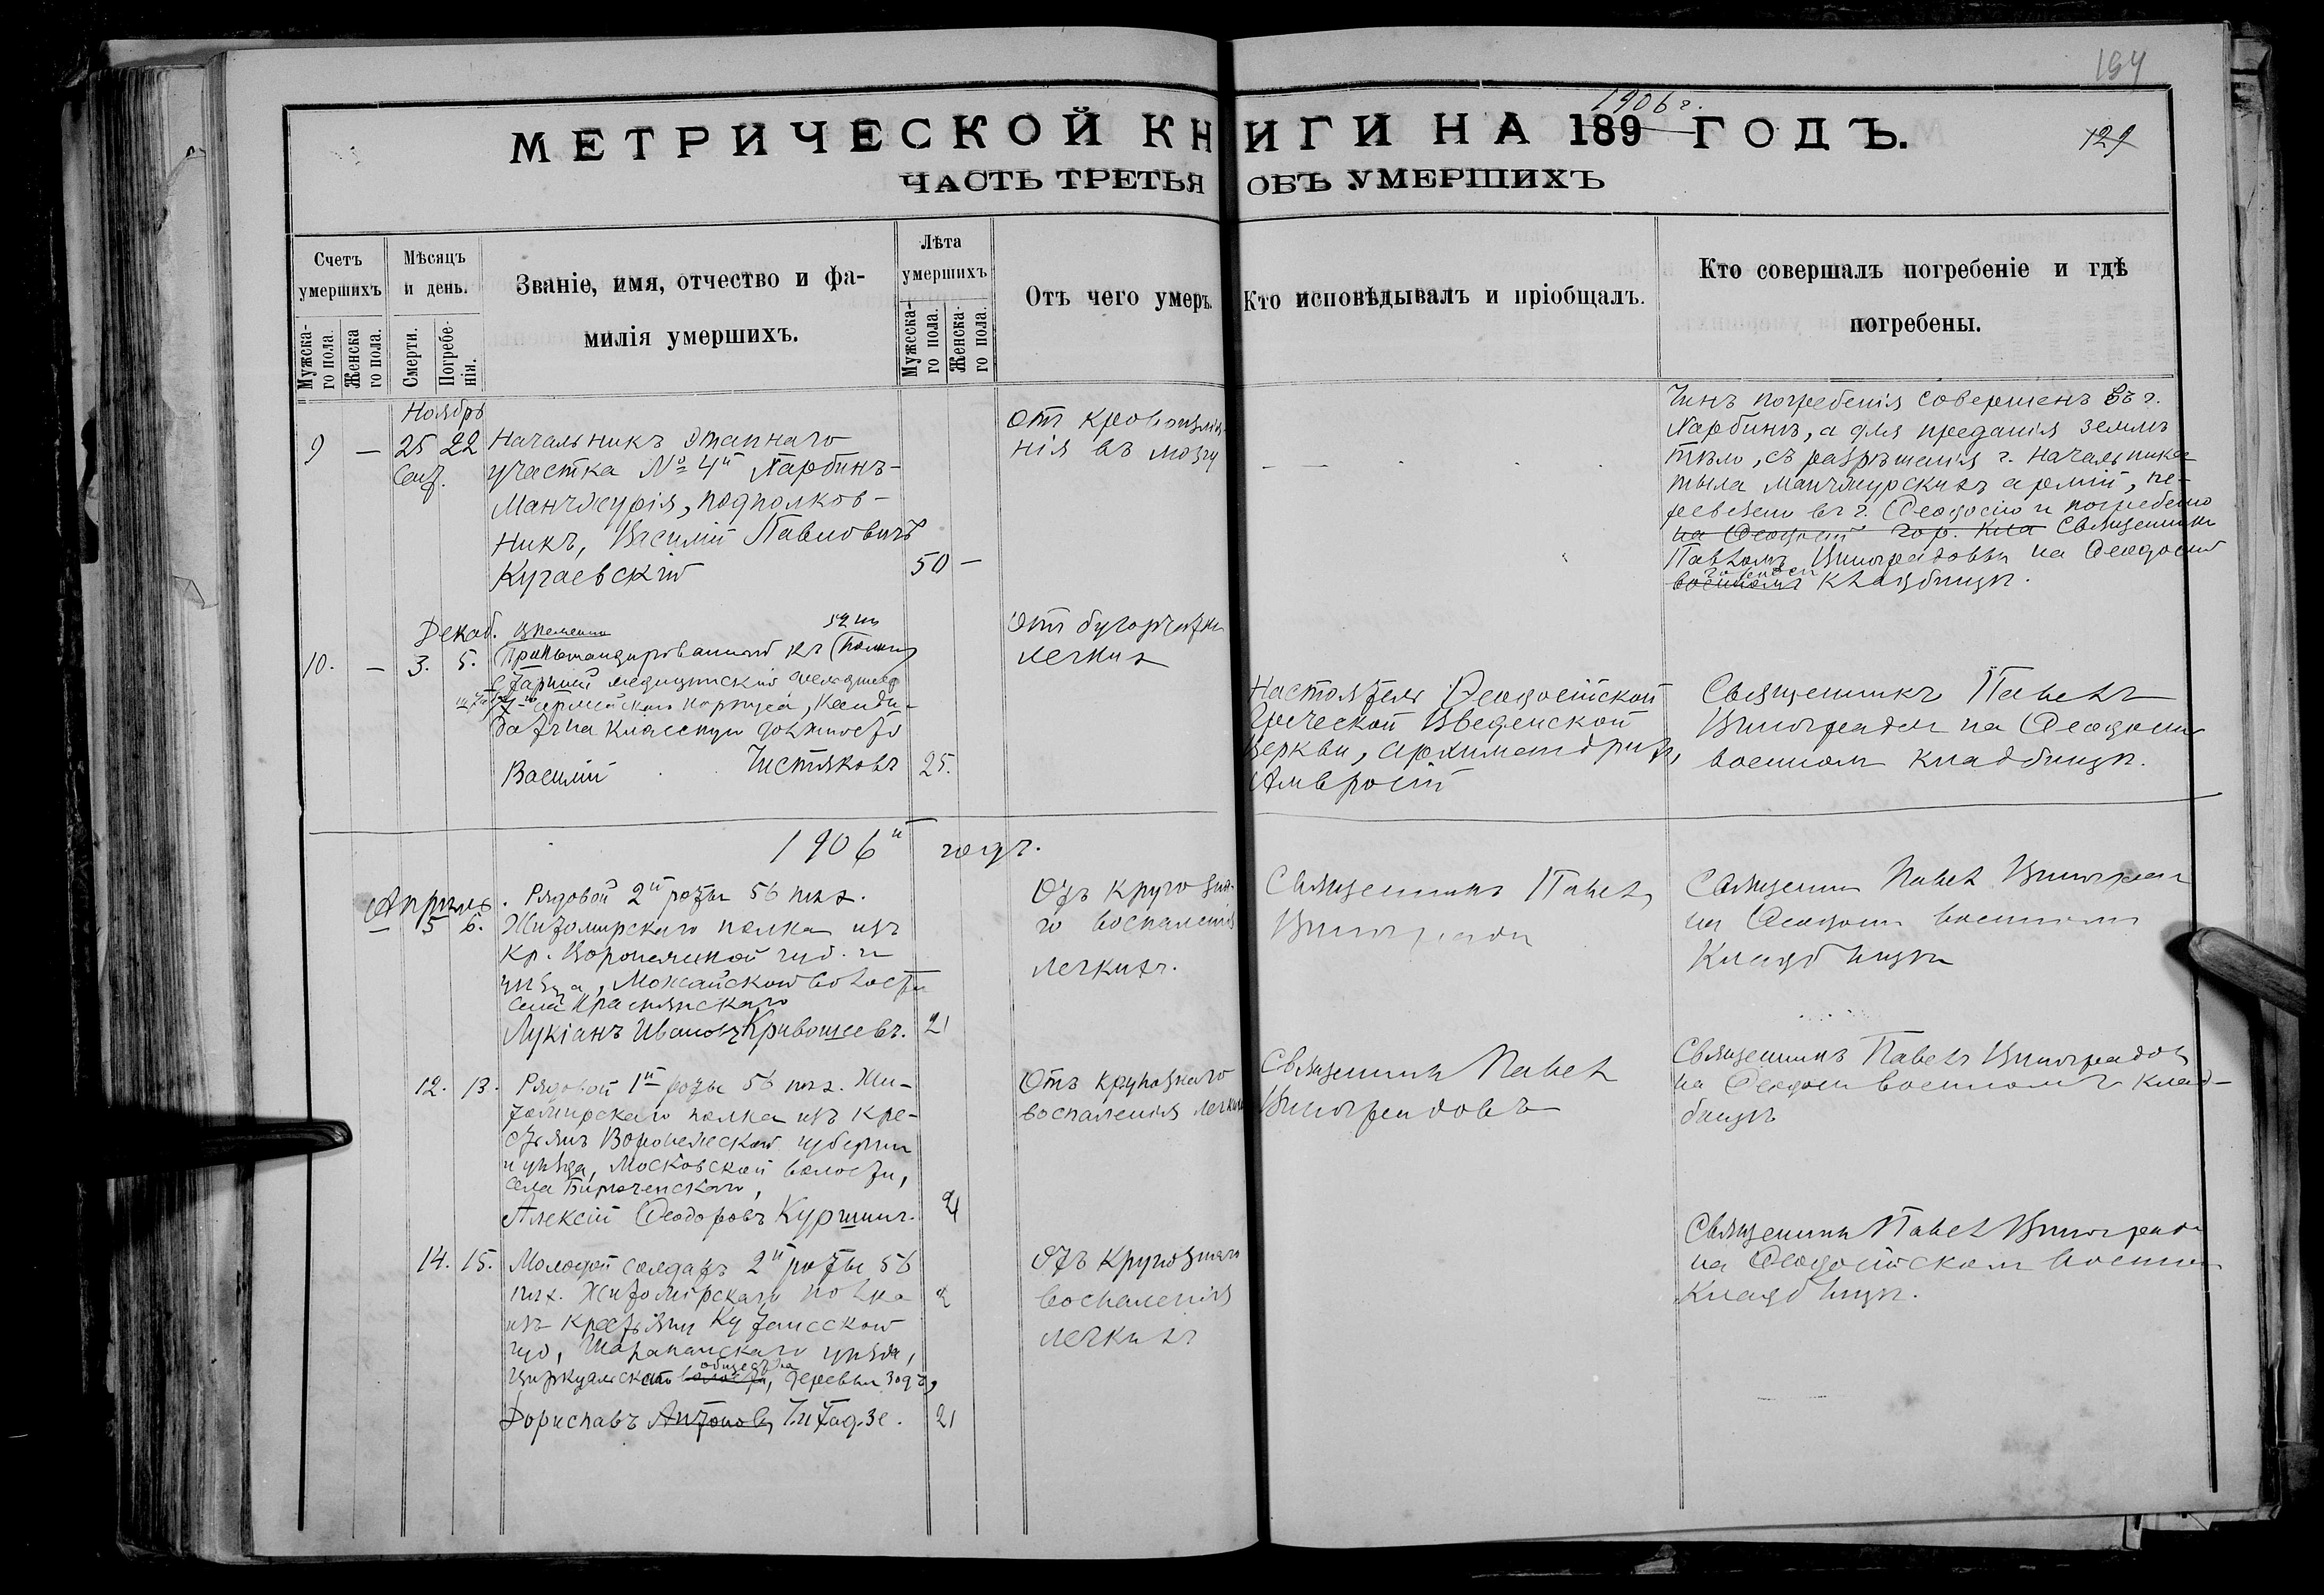 194
1906 г.
МЕТРИЧЕСКОЙ КНИГИ НА 189 ГОДЪ.
129
ЧАСТЬ ТРЕТЬЯ ОБЪ УМЕРШИХЪ
Счетъ умершихъ
Мужска-го пола.
Женска го пола.
Мѣсяцъ и день.
Смерти.
Погребе-нія.
Званіе, имя, отчество и фа-
милія умершихъ.
Лѣта умершихъ
Мужеска-го пола.
Женска-го пола.
Отъ чего умеръ.
Кто исповѣдывалъ и пріобщалъ.
Кто совершалъ погребеніе и гдѣ
погребены.
Ноябрь
9 — 25 22
Начальникъ этапнаго
участка № 4й Харбинъ-
Манчжурія, подполков-
никъ, Василій Павловичъ
Кугаевскій
50 —
От кровоизлія-
нія въ мозгу
Чинъ погребенія совершенъ въ г.
Харбинѣ, а для преданія землѣ
тѣло, съ разрѣшенія г. Начальника
тыла Манчжурскихъ армій, пе-
ревезено въ г. Ѳеодосію и погребено
на гор. Священником
Павломъ Виноградовым на
военномъ кладбищѣ.
Декаб.
10. — 3. 5.
Временно 52 пх
Прикомандированный къ полку
Старшій медицинскій фельдшер
армейскаго корпуса, Канди-
датъ на классную должность
Василій Чистяковъ
25.
Отъ бугорчатки
легких
Настоятель Ѳеодосійской
Греческой Введенской
Церкви, архимандритъ,
Амвросій
Священникъ Павелъ
Виноградов на Ѳеодосій
военном кладбищѣ.
1906й годъ.
Апрѣль
5 6.
Рядовой 2й роты 56 пѣх.
Житомирскаго полка изъ
кр. Воронежской губ. и
уѣзда, Можайской волости
села Краснянскаго
Лукіанъ Ивановъ Кривошеевъ.
21
Отъ крупозна-
го воспаленія
легкихъ.
Священникъ Павелъ
Виноградов
Священник Павел Виноградов
на Ѳеодосій военном
Кладбищѣ
12. 13.
Рядовой 1й роты 56 пѣх. Жи-
томирскаго полка изъ кре-
стьянъ Воронежской губерніи
и уѣзда, Московской волости,
села
Алексій Ѳеодоровъ Куршин.
21
Отъ крупознаго
воспаленія легких
Священникъ Павел
Виноградовъ
Священникъ Павелъ Виноградов
на Ѳеодосій военномъ клад-
бищѣ
14. 15.
Молодой солдатъ 2й роты 56
пѣх. Житомірскаго полка
изъ крестьянъ Кутаисской
губ, Шарапанскаго уѣзда,
общества
волости, деревни
Дориспавъ Антоновъ
21
Отъ крупознаго
воспаленія
легкихъ
Священникъ Павел Виноградов
на Ѳеодосійском военном
Кладбищѣ.